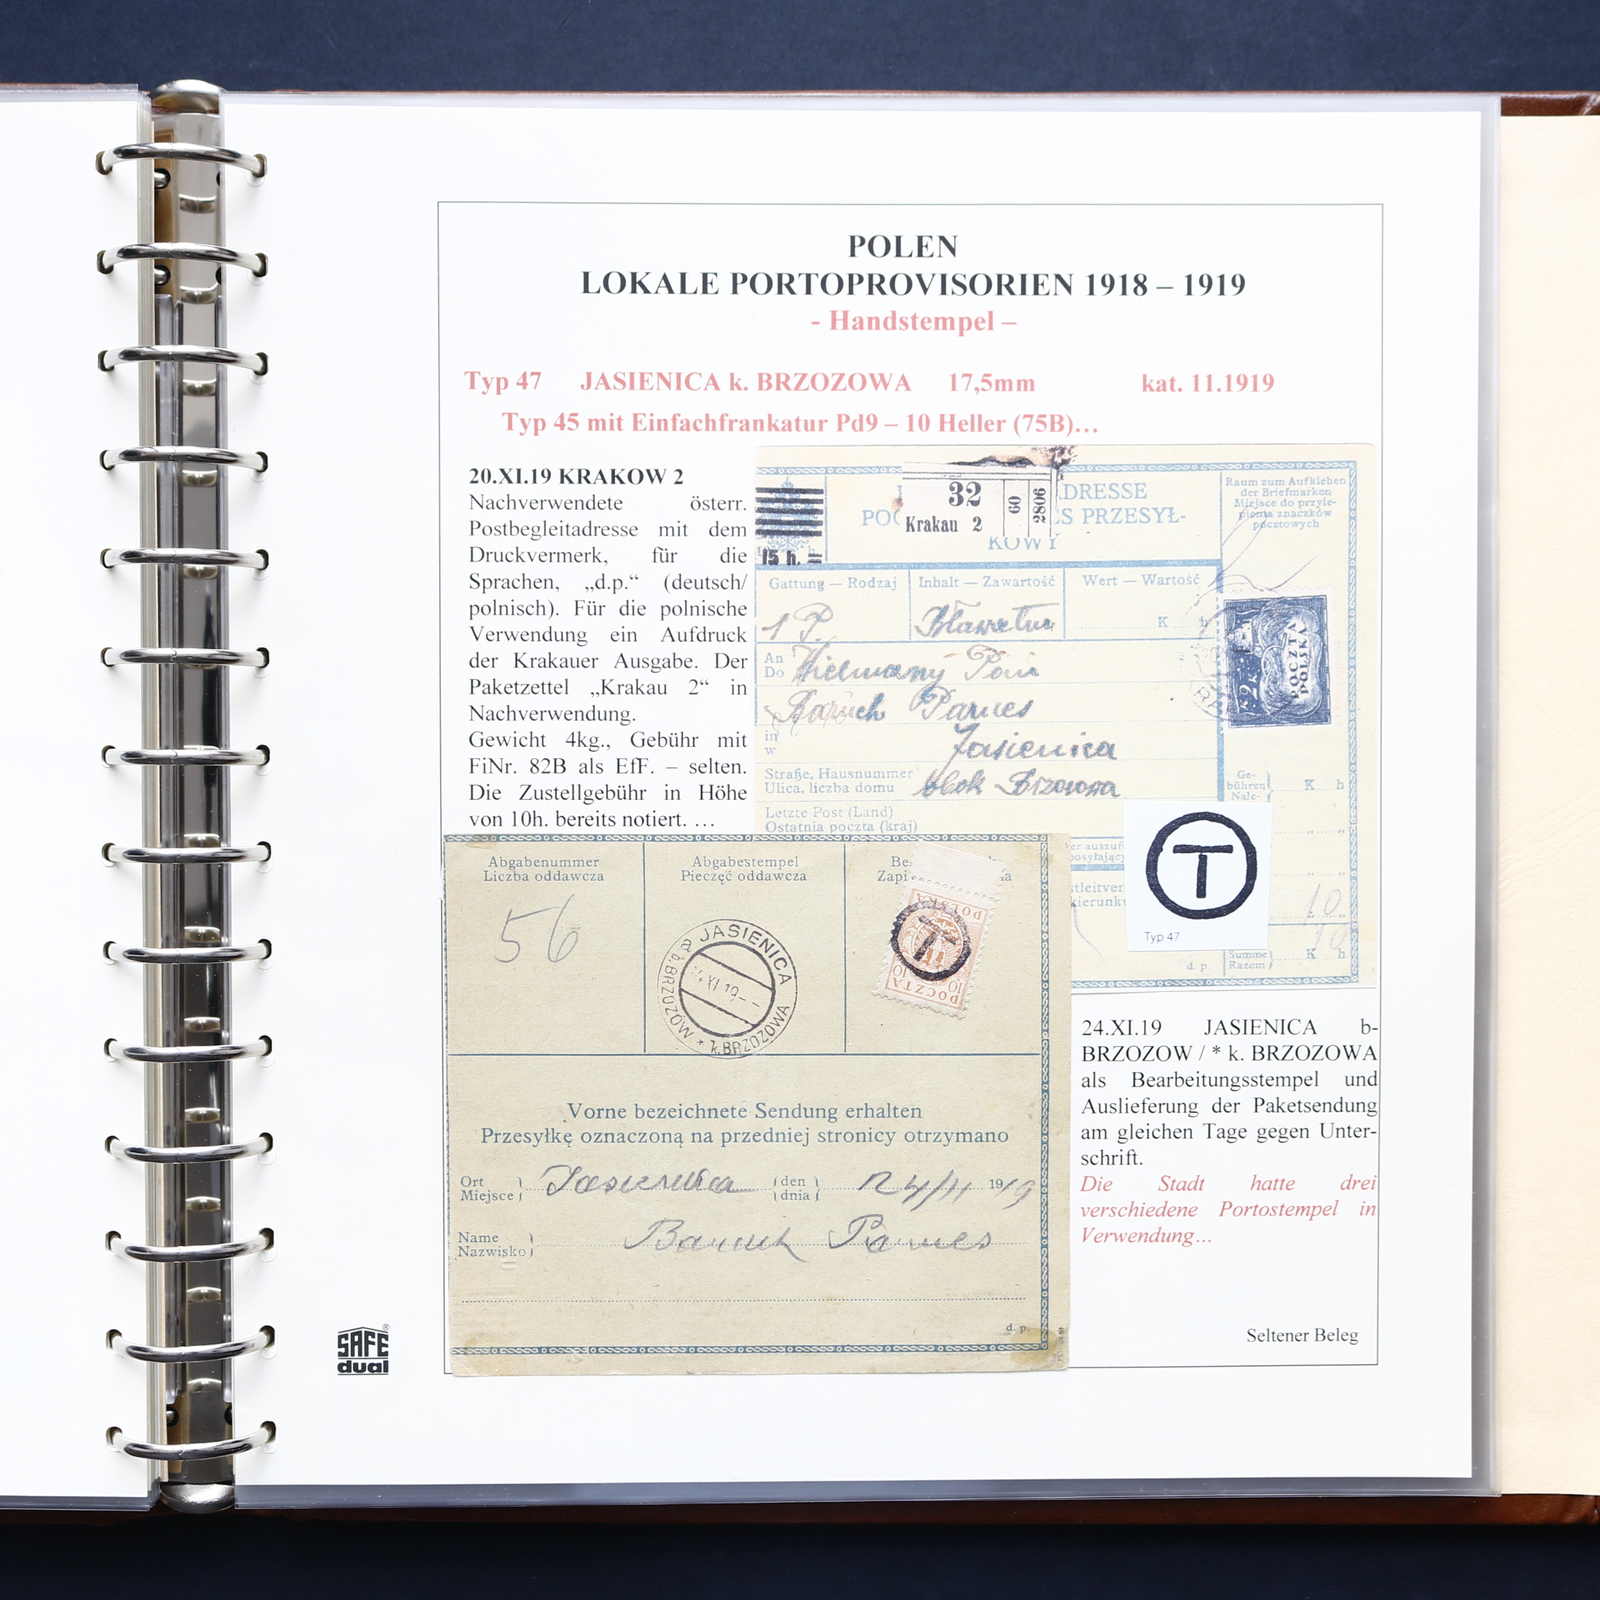 POLEN
LOKALE PORTOPROVISORIEN 1918 – 1919
- Handstempel –
Typ 47 JASIENICA k. BRZOZOWA 17,5mm kat. 11.1919
Typ 45 mit Einfachfrankatur Pd9 – 10 Heller (75B)…
20.XI.19 KRAKOW 2
Nachverwendete österr.
Postbegleitadresse mit dem
Druckvermerk, für die
Sprachen, „d.p.“ (deutsch/
polnisch). Für die polnische
Verwendung ein Aufdruck
der Krakauer Ausgabe. Der
Paketzettel „Krakau 2“ in
Nachverwendung.
Gewicht 4kg., Gebühr mit
FiNr. 82B als EfF. – selten.
Die Zustellgebühr in Höhe
von 10h. bereits notiert. …
15 h.
32
Krakau 2
60
2806
DRESSE
S PRZESYŁ-
KOWY
Raum zum Aufkleben
der Briefmarken
Miejsce do przyle-
pienia znaczków
pocztowych
Gattung — Rodzaj
Inhalt — Zawartość
Wert — Wartość
1 P.
K h
An
Do
Wielmożny Pan
Baruch Parnes
in
w
Jasienica
Straße, Hausnummer
Ulica, liczba domu
obok Brzozowa
Letzte Post (Land)
Ostatnia poczta (kraj)
POCZTA
POLSKA
2 K
Ge-
bühren
Nale-
K h
T
Typ 47
10
10
Summe
Razem
K h
d. p.
Abgabenummer
Liczba oddawcza
Abgabestempel
Pieczęć oddawcza
56
JASIENICA
b. BRZOZÓW * k. BRZOZOWA
XI 19
POCZTA
POLSKA
10 10
T
Vorne bezeichnete Sendung erhalten
Przesyłkę oznaczoną na przedniej stronicy otrzymano
Ort
Miejsce
Jasienica
den
dnia
24/11 1919
Name
Nazwisko
Baruch Parnes
d. p.
24.XI.19 JASIENICA b-
BRZOZOW / * k. BRZOZOWA
als Bearbeitungsstempel und
Auslieferung der Paketsendung
am gleichen Tage gegen Unter-
schrift.
Die Stadt hatte drei
verschiedene Portostempel in
Verwendung…
Seltener Beleg
SAFE®
dual